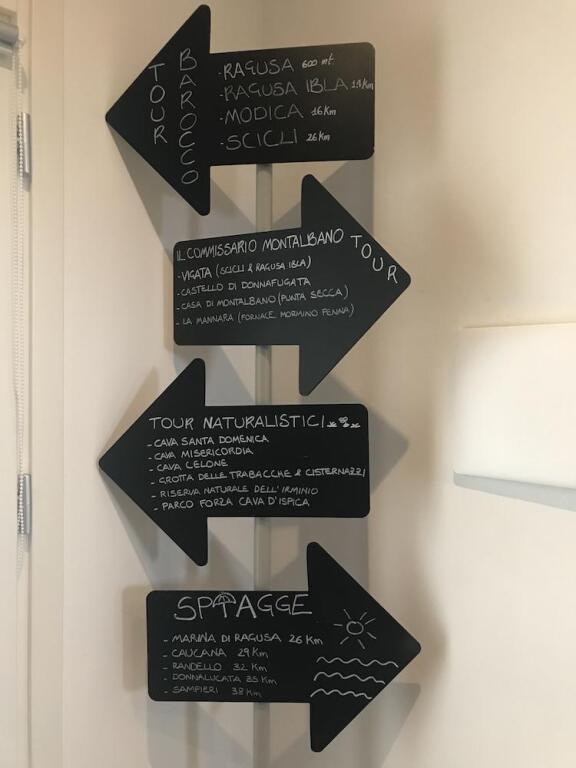 TOUR BAROCCO
- RAGUSA 600 mt.
- RAGUSA IBLA Km
- MODICA 16 Km
- SCICLI 26 Km
IL COMMISSARIO MONTALBANO TOUR
- VIGATA (SCICLI & RAGUSA IBLA)
- CASTELLO DI DONNAFUGATA
- CASA DI MONTALBANO (PUNTA SECCA)
- LA MANNARA (FORNACE MORMINO PENNA)
TOUR NATURALISTICI
- CAVA SANTA DOMENICA
- CAVA MISERICORDIA
- CAVA CELONE
- GROTTA DELLE TRABACCHE & CISTERNAZZI
- RISERVA NATURALE DELL'IRMINIO
- PARCO FORZA CAVA D'ISPICA
SPIAGGE
- MARINA DI RAGUSA 26 Km
- CAUCANA 29 Km
- RANDELLO 32 Km
- DONNALUCATA 35 Km
- SAMPIERI 38 Km